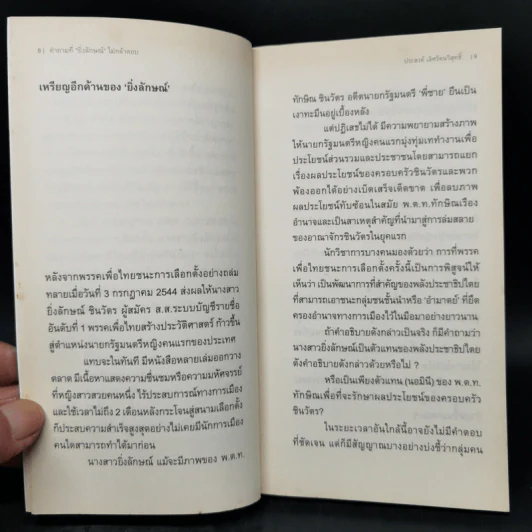 8 | คำถามที่ 'ยิ่งลักษณ์' ไม่กล้าตอบ
เหรียญอีกด้านของ 'ยิ่งลักษณ์'
หลังจากพรรคเพื่อไทยชนะการเลือกตั้งอย่างถล่ม
ทลายเมื่อวันที่ 3 กรกฎาคม 2544 ส่งผลให้นางสาว
ยิ่งลักษณ์ ชินวัตร ผู้สมัคร ส.ส.ระบบบัญชีรายชื่อ
อันดับที่ 1 พรรคเพื่อไทยสร้างประวัติศาสตร์ ก้าวขึ้น
สู่ตำแหน่งนายกรัฐมนตรีหญิงคนแรกของประเทศ
แทบจะในทันที มีหนังสือหลายเล่มออกวาง
ตลาด มีเนื้อหาแสดงความชื่นชมหรือความมหัศจรรย์
ที่หญิงสาวสวยคนหนึ่ง ไร้ประสบการณ์ทางการเมือง
และใช้เวลาไม่ถึง 2 เดือนหลังกระโจนสู่สนามเลือกตั้ง
ก็ประสบความสำเร็จสูงสุดอย่างไม่เคยมีนักการเมือง
คนใดสามารถทำได้มาก่อน
นางสาวยิ่งลักษณ์ แม้จะมีภาพของ พ.ต.ท.
ประสงค์ เลิศรัตนวิสุทธิ์ | 9
ทักษิณ ชินวัตร อดีตนายกรัฐมนตรี 'พี่ชาย' ยืนเป็น
เงาทะมึนอยู่เบื้องหลัง
แต่ปฏิเสธไม่ได้ มีความพยายามสร้างภาพ
ให้นายกรัฐมนตรีหญิงคนแรกมุ่งทุ่มเททำงานเพื่อ
ประโยชน์ส่วนรวมและประชาชนโดยสามารถแยก
เรื่องผลประโยชน์ของครอบครัวชินวัตรและพวก
พ้องออกได้อย่างเบ็ดเสร็จเด็ดขาด เพื่อลบภาพ
ผลประโยชน์ทับซ้อนในสมัย พ.ต.ท.ทักษิณเรือง
อำนาจและเป็นสาเหตุสำคัญที่นำมาสู่การล่มสลาย
ของอาณาจักรชินวัตรในยุคแรก
นักวิชาการบางคนมองด้วยว่า การที่พรรค
เพื่อไทยชนะการเลือกตั้งครั้งนี้เป็นการพิสูจน์ให้
เห็นว่า เป็นพัฒนาการที่สำคัญของพลังประชาธิปไตย
ที่สามารถเอาชนะกลุ่มชนชั้นนำหรือ 'อำมาตย์' ที่ยึด
ครองอำนาจทางการเมืองไว้ในมือมาอย่างยาวนาน
ถ้าคำอธิบายดังกล่าวเป็นจริง ก็มีคำถามว่า
นางสาวยิ่งลักษณ์เป็นตัวแทนของพลังประชาธิปไตย
ดังคำอธิบายดังกล่าวด้วยหรือไม่ ?
หรือเป็นเพียงตัวแทน (นอมินี) ของ พ.ต.ท.
ทักษิณเพื่อที่จะรักษาผลประโยชน์ของครอบครัว
ชินวัตร?
ในระยะเวลาอันใกล้นี้อาจยังไม่มีคำตอบ
ที่ชัดเจน แต่ก็มีสัญญาณบางอย่างบ่งชี้ว่ากลุ่มคน